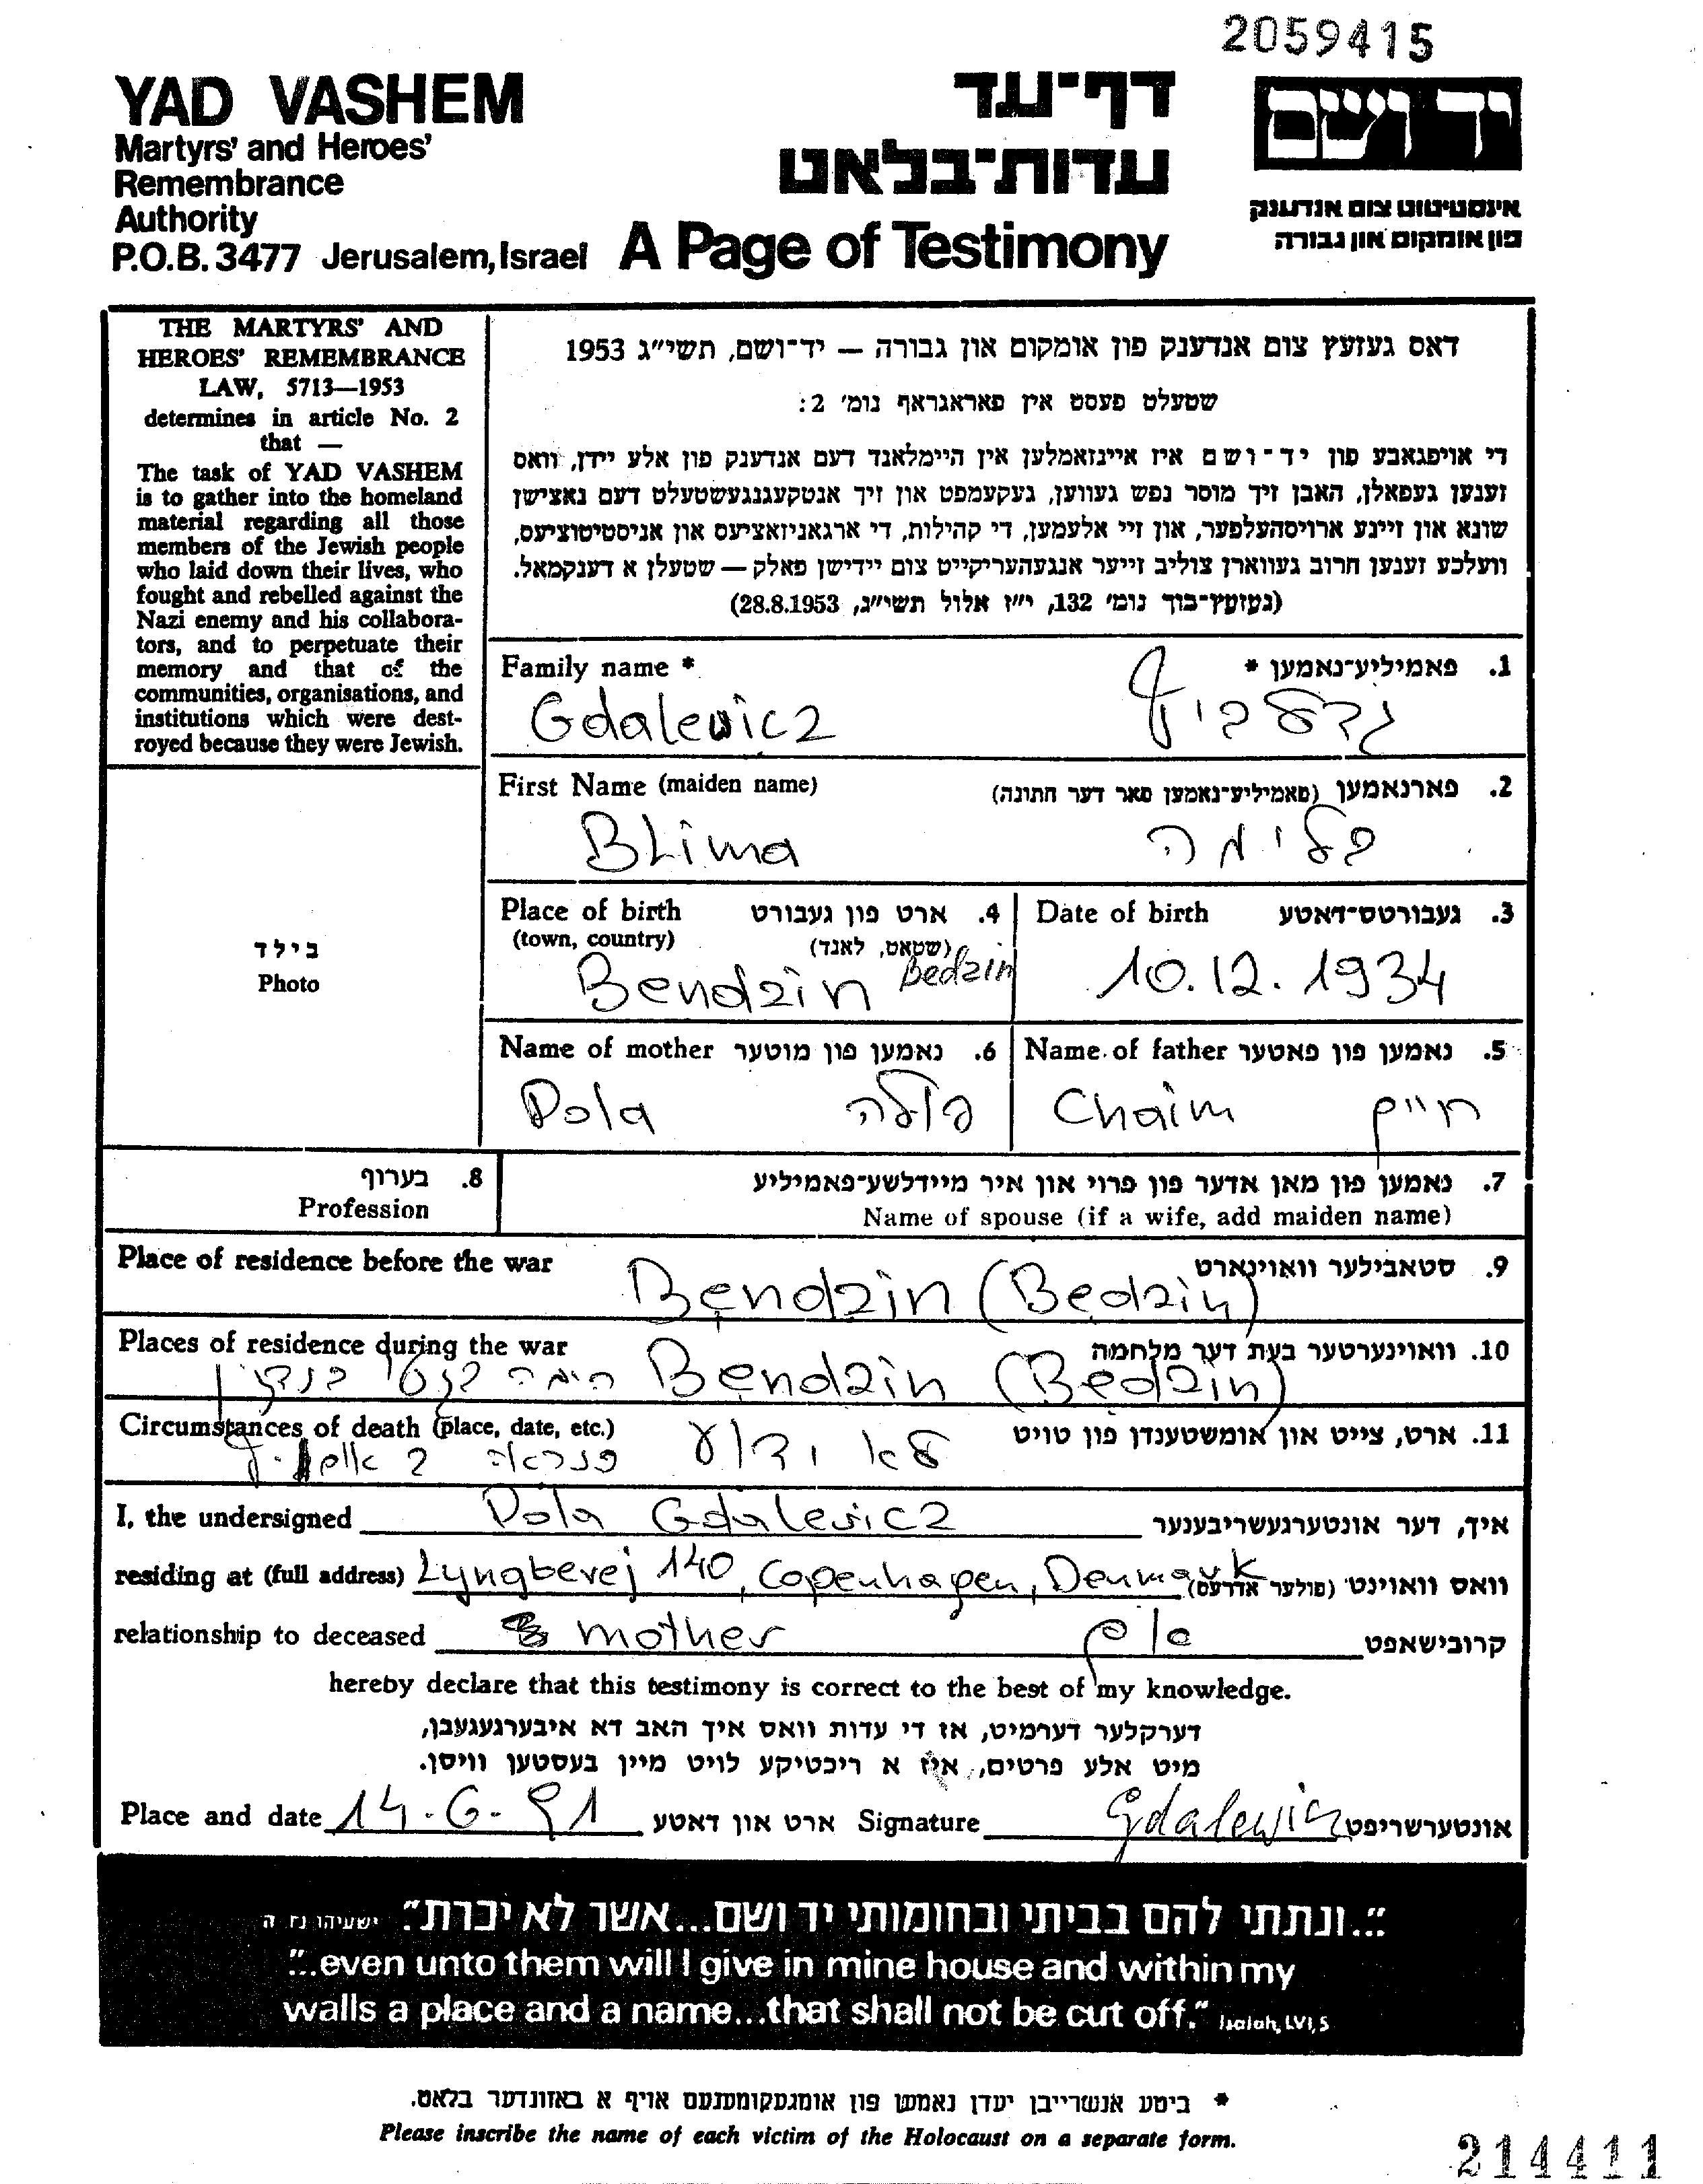 2059415
YAD VASHEM
Martyrs' and Heroes'
Remembrance
Authority
P.O.B. 3477 Jerusalem, Israel
דף־עד
עדות־בלאט
A Page of Testimony
יד ושם
אינסטיטוט צום אנדענק
פון אומקום און גבורה
THE MARTYRS' AND
HEROES' REMEMBRANCE
LAW, 5713—1953
determines in article No. 2
that —
The task of YAD VASHEM
is to gather into the homeland
material regarding all those
members of the Jewish people
who laid down their lives, who
fought and rebelled against the
Nazi enemy and his collabora-
tors, and to perpetuate their
memory and that of the
communities, organisations, and
institutions which were dest-
royed because they were Jewish.
דאס געזעץ צום אנדענק פון אומקום און גבורה — יד־ושם, תשי״ג 1953
שטעלט פעסט אין פאראגראף נומ׳ 2:
די אויפגאבע פון יד־ושם איז איינזאמלען אין היימלאנד דעם אנדענק פון אלע יידן, וואס
זענען געפאלן, האבן זיך מוסר נפש געווען, געקעמפט און זיך אנטקעגנגעשטעלט דעם נאצישן
שונא און זיינע ארויסהעלפער, און זיי אלעמען, די קהילות, די ארגאניזאציעס און אינסטיטוציעס,
וועלכע זענען חרוב געווארן צוליב זייער אנגעהעריקייט צום יידישן פאלק — שטעלן א דענקמאל.
(געזעץ־בוך נומ׳ 132, י״ז אלול תשי״ג, 28.8.1953)
Family name *
1. פאמיליע־נאמען *
Gdalewicz
First Name (maiden name)
2. פארנאמען (פאמיליע־נאמען פאר דער חתונה)
BLima
בלימה
Place of birth
4. ארט פון געבורט
(town, country)
(שטאט, לאנד)
Bendzin Bedzin
Date of birth
3. געבורטס־דאטע
10.12.1934
בילד
Photo
Name of mother 6. נאמען פון מוטער
Pola פולה
Name of father 5. נאמען פון פאטער
Chaim חיים
8. בערוף
Profession
7. נאמען פון מאן אדער פון פרוי און איר מיידלשע־פאמיליע
Name of spouse (if a wife, add maiden name)
Place of residence before the war
9. סטאבילער וואוינארט
Bendzin (Bedzin)
Places of residence during the war
10. וואוינערטער בעת דער מלחמה
Bendzin (Bedzin)
היתה בגטו בנדzין
Circumstances of death (place, date, etc.)
11. ארט, צייט און אומשטענדן פון טויט
לא ידוע
כנראה ב
I, the undersigned Pola Gdalewicz איך, דער אונטערגעשריבענער
residing at (full address) Lyngbyvej 140, Copenhagen, Denmark וואס וואוינט (פולער אדרעס)
relationship to deceased mother אם קרובישאפט
hereby declare that this testimony is correct to the best of my knowledge.
דערקלער דערמיט, אז די עדות וואס איך האב דא איבערגעגעבן,
מיט אלע פרטים, איז א ריכטיקע לויט מיין בעסטען וויסן.
Place and date 14-6-91 ארט און דאטע Signature Gdalewicz אונטערשריפט
"...ונתתי להם בביתי ובחומותי יד ושם...אשר לא יכרת" ישעיהו נו ה
"...even unto them will I give in mine house and within my
walls a place and a name...that shall not be cut off." Isaiah, LVI, 5
* ביטע אנשרייבן יעדן נאמען פון אומגעקומענעם אויף א באזונדער בלאט.
Please inscribe the name of each victim of the Holocaust on a separate form.
214411